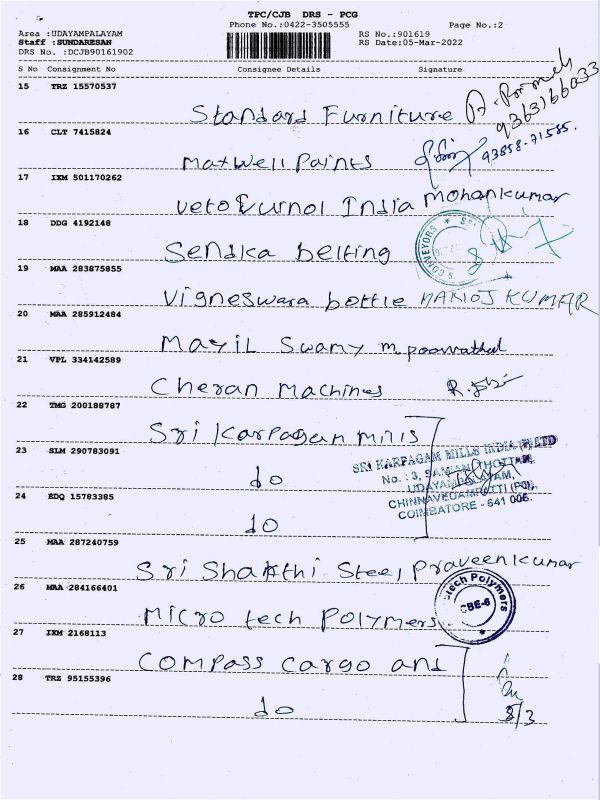 TPC/CJB DRS - PCG
Phone No.:0422-3505555 Page No.:2
Area :UDAYAMPALAYAM RS No.:901619
Staff :SUNDARESAN RS Date:05-Mar-2022
DRS No. :DCJB90161902
S No Consignment No Consignee Details Signature
15 TRZ 15570537
Standard Furniture 9363166033
16 CLT 7415824
Maxwell Paints 93858-71585.
17 IXM 501170262
India Mohankumar
18 DDG 4192148
Sendka belting CONVEYORS
19 MAA 283875855
Vigneswara bottle MANOJ KUMAR
20 MAA 285912484
Mayil Swamy
21 VPL 334142589
Cheran Machines
22 TMG 200188787
Sri Karpagam Mills
23 SLM 290783091
do
SRI KARPAGAM MILLS INDIA (P) LTD
No. : 3, SAMIAN THOTTAM,
UDAYAMPALAYAM,
24 EDQ 15783385
CHINNAVEDAMPATTI (PO),
COIMBATORE - 641 006.
do
25 MAA 287240759
Sri Shakthi Steel Praveenkumar
26 MAA 284166401
Micro tech Polymers tech Polymers CBE-6
27 IXM 2168113
Compass cargo and
28 TRZ 95155396
do 8/3